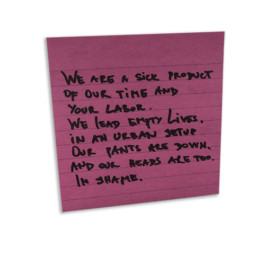 WE ARE A SICK PRODUCT
OF OUR TIME AND
YOUR LABOR.
WE LEAD EMPTY LIVES.
IN AN URBAN SETUP
OUR PANTS ARE DOWN.
AND OUR HEADS ARE TOO.
IN SHAME.